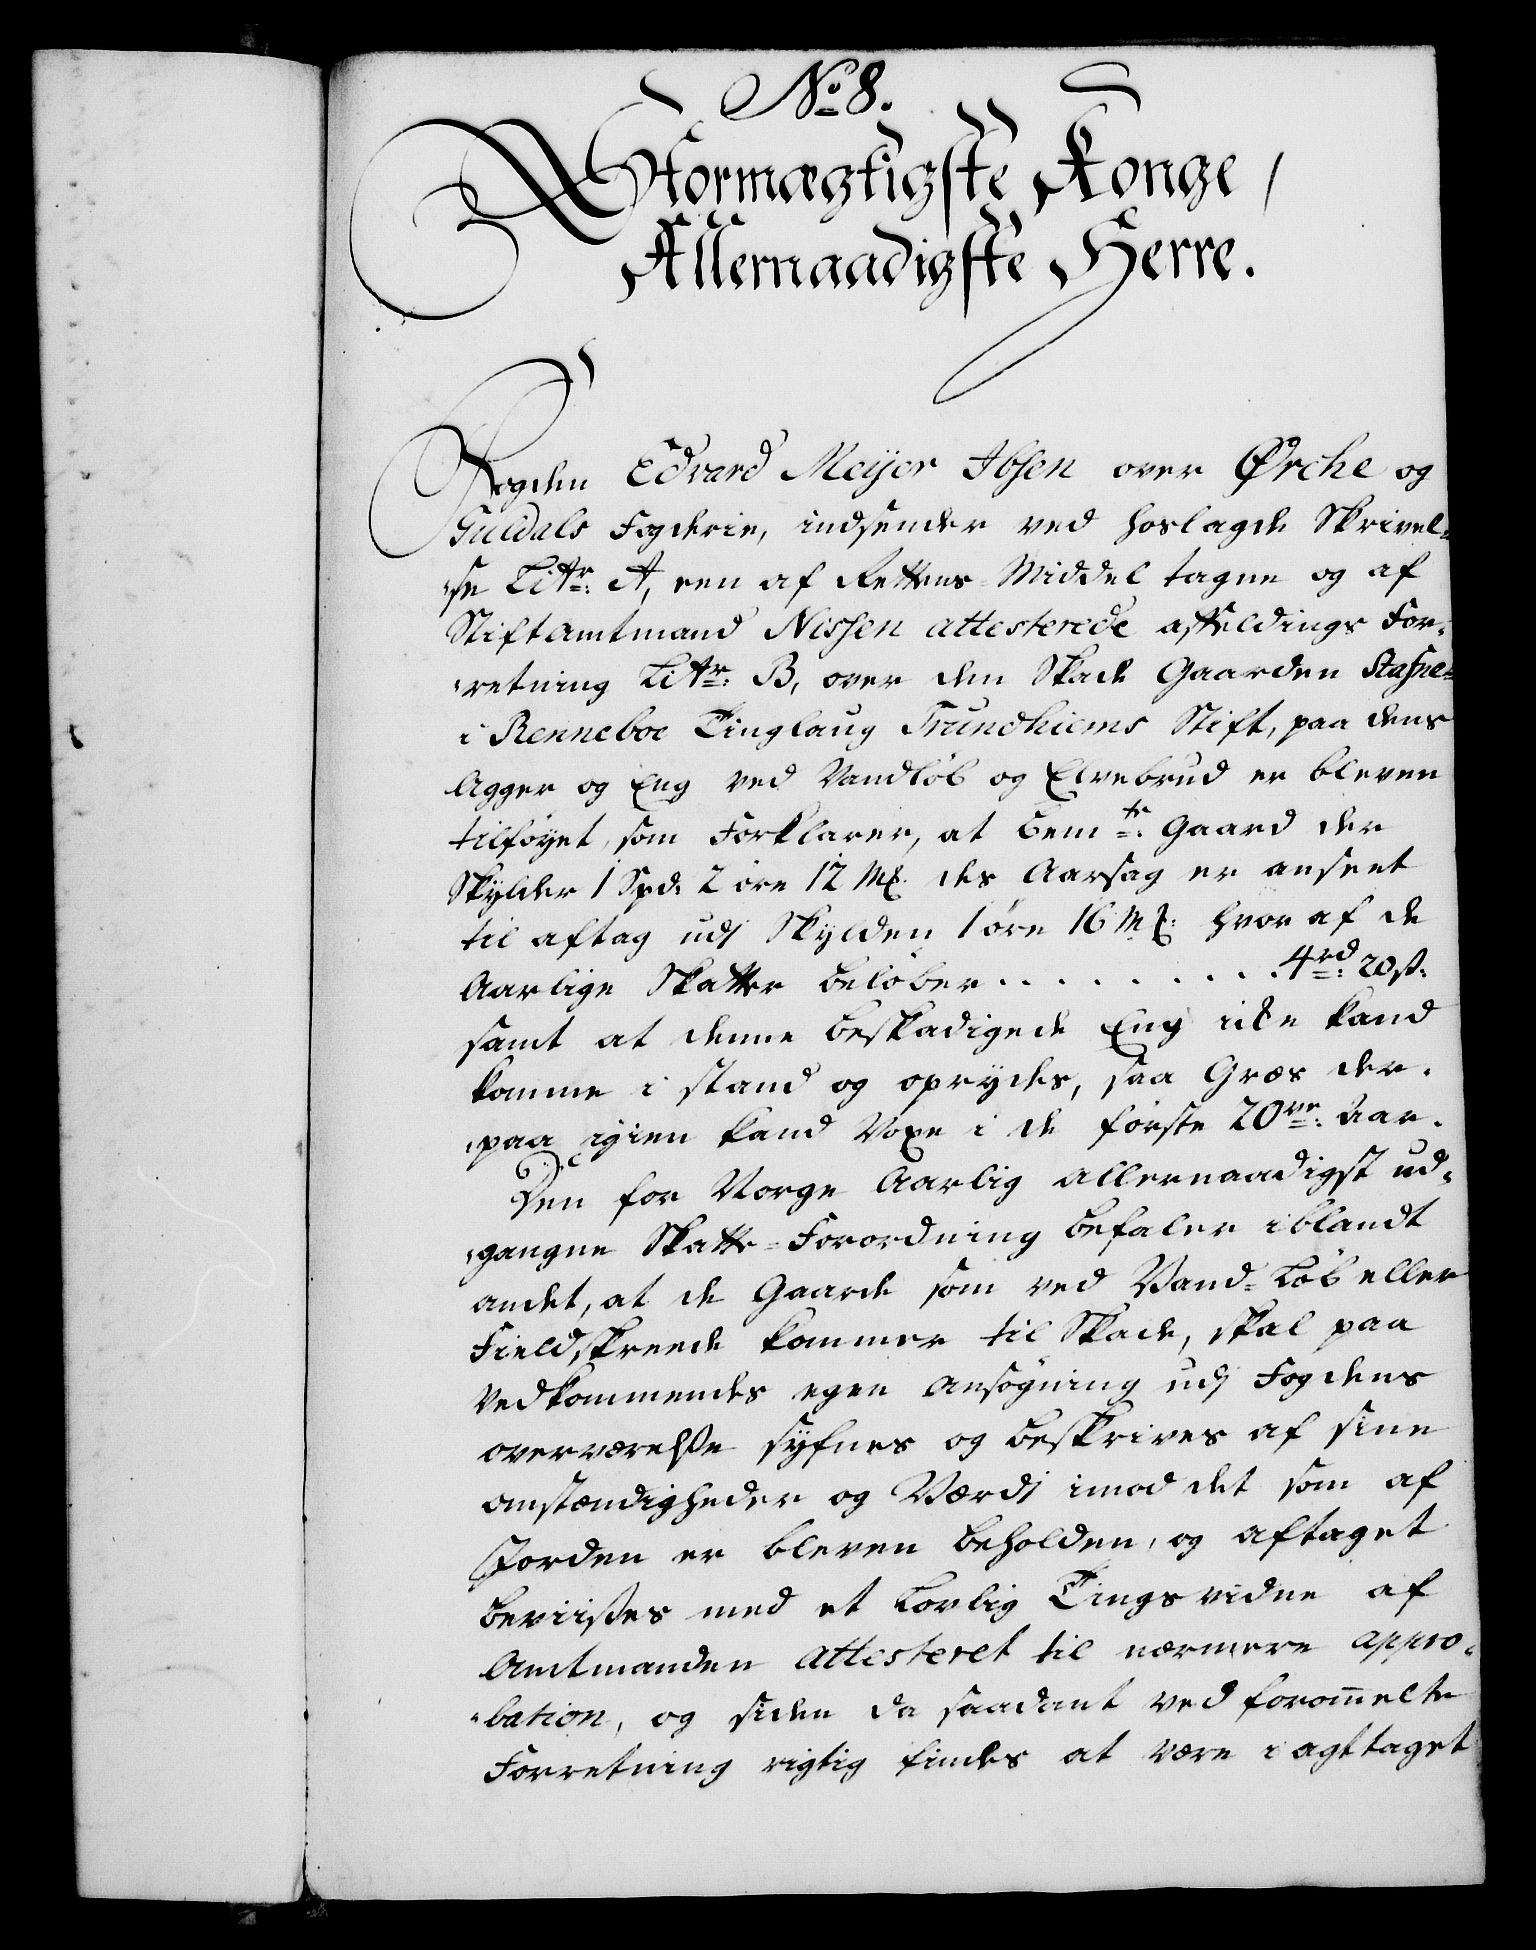 No 8.
Stormægtigste Konge,
Allernaadigste Herre.
Fogden Edvard Meyer Ibsen over Ørche og
Guldals Fogderie, indsender ved hoslagde Skrivel-
se Littr: A, een af Rettens Middel tagne og af
Stiftamtmand Nissen attesterede affældings For-
retning Littr: B, over den Skade Gaarden Stafne-
i Renneboe Tinglaug Trundhiems Stift, paa dens
Agger og Eng ved Vandløb og Elvebrud er bleven
tilføyet, som Forklarer, at bemte: Gaard der
Skylder 1 Spd: 2 øre 12 Mk des Aarsag er anseet
til aftag udj Skylden 1 øre 16 Mk: hvor af de
Aarlige Skatter beløber . . . . . . . . 4rd: 20 s:
samt at denne beskadigede Eng icke kand
komme i stand og opryddes, saa Græs der-
paa igien kand Voxe i de første 20ve: Aar.
Den for Norge Aarlig allernaadigst ud-
gangne Skatte-Forordning befaler iblandt
andet, at de Gaarde som ved Vand-Løb eller
Fieldskreede kommer til Skade, skal paa
Vedkommendes egen Ansøgning udj Fogdens
overværelse syfnes og beskrives af sine
omstændigheder og Værdj imod det som af
Jorden er bleven beholden, og aftaget
beviises med et Lovlig Tingsvidne af
Amtmanden attesteret til nærmere appro-
bation, og siden da saadant ved foromelte
Forretning rigtig findes at være i agttaget